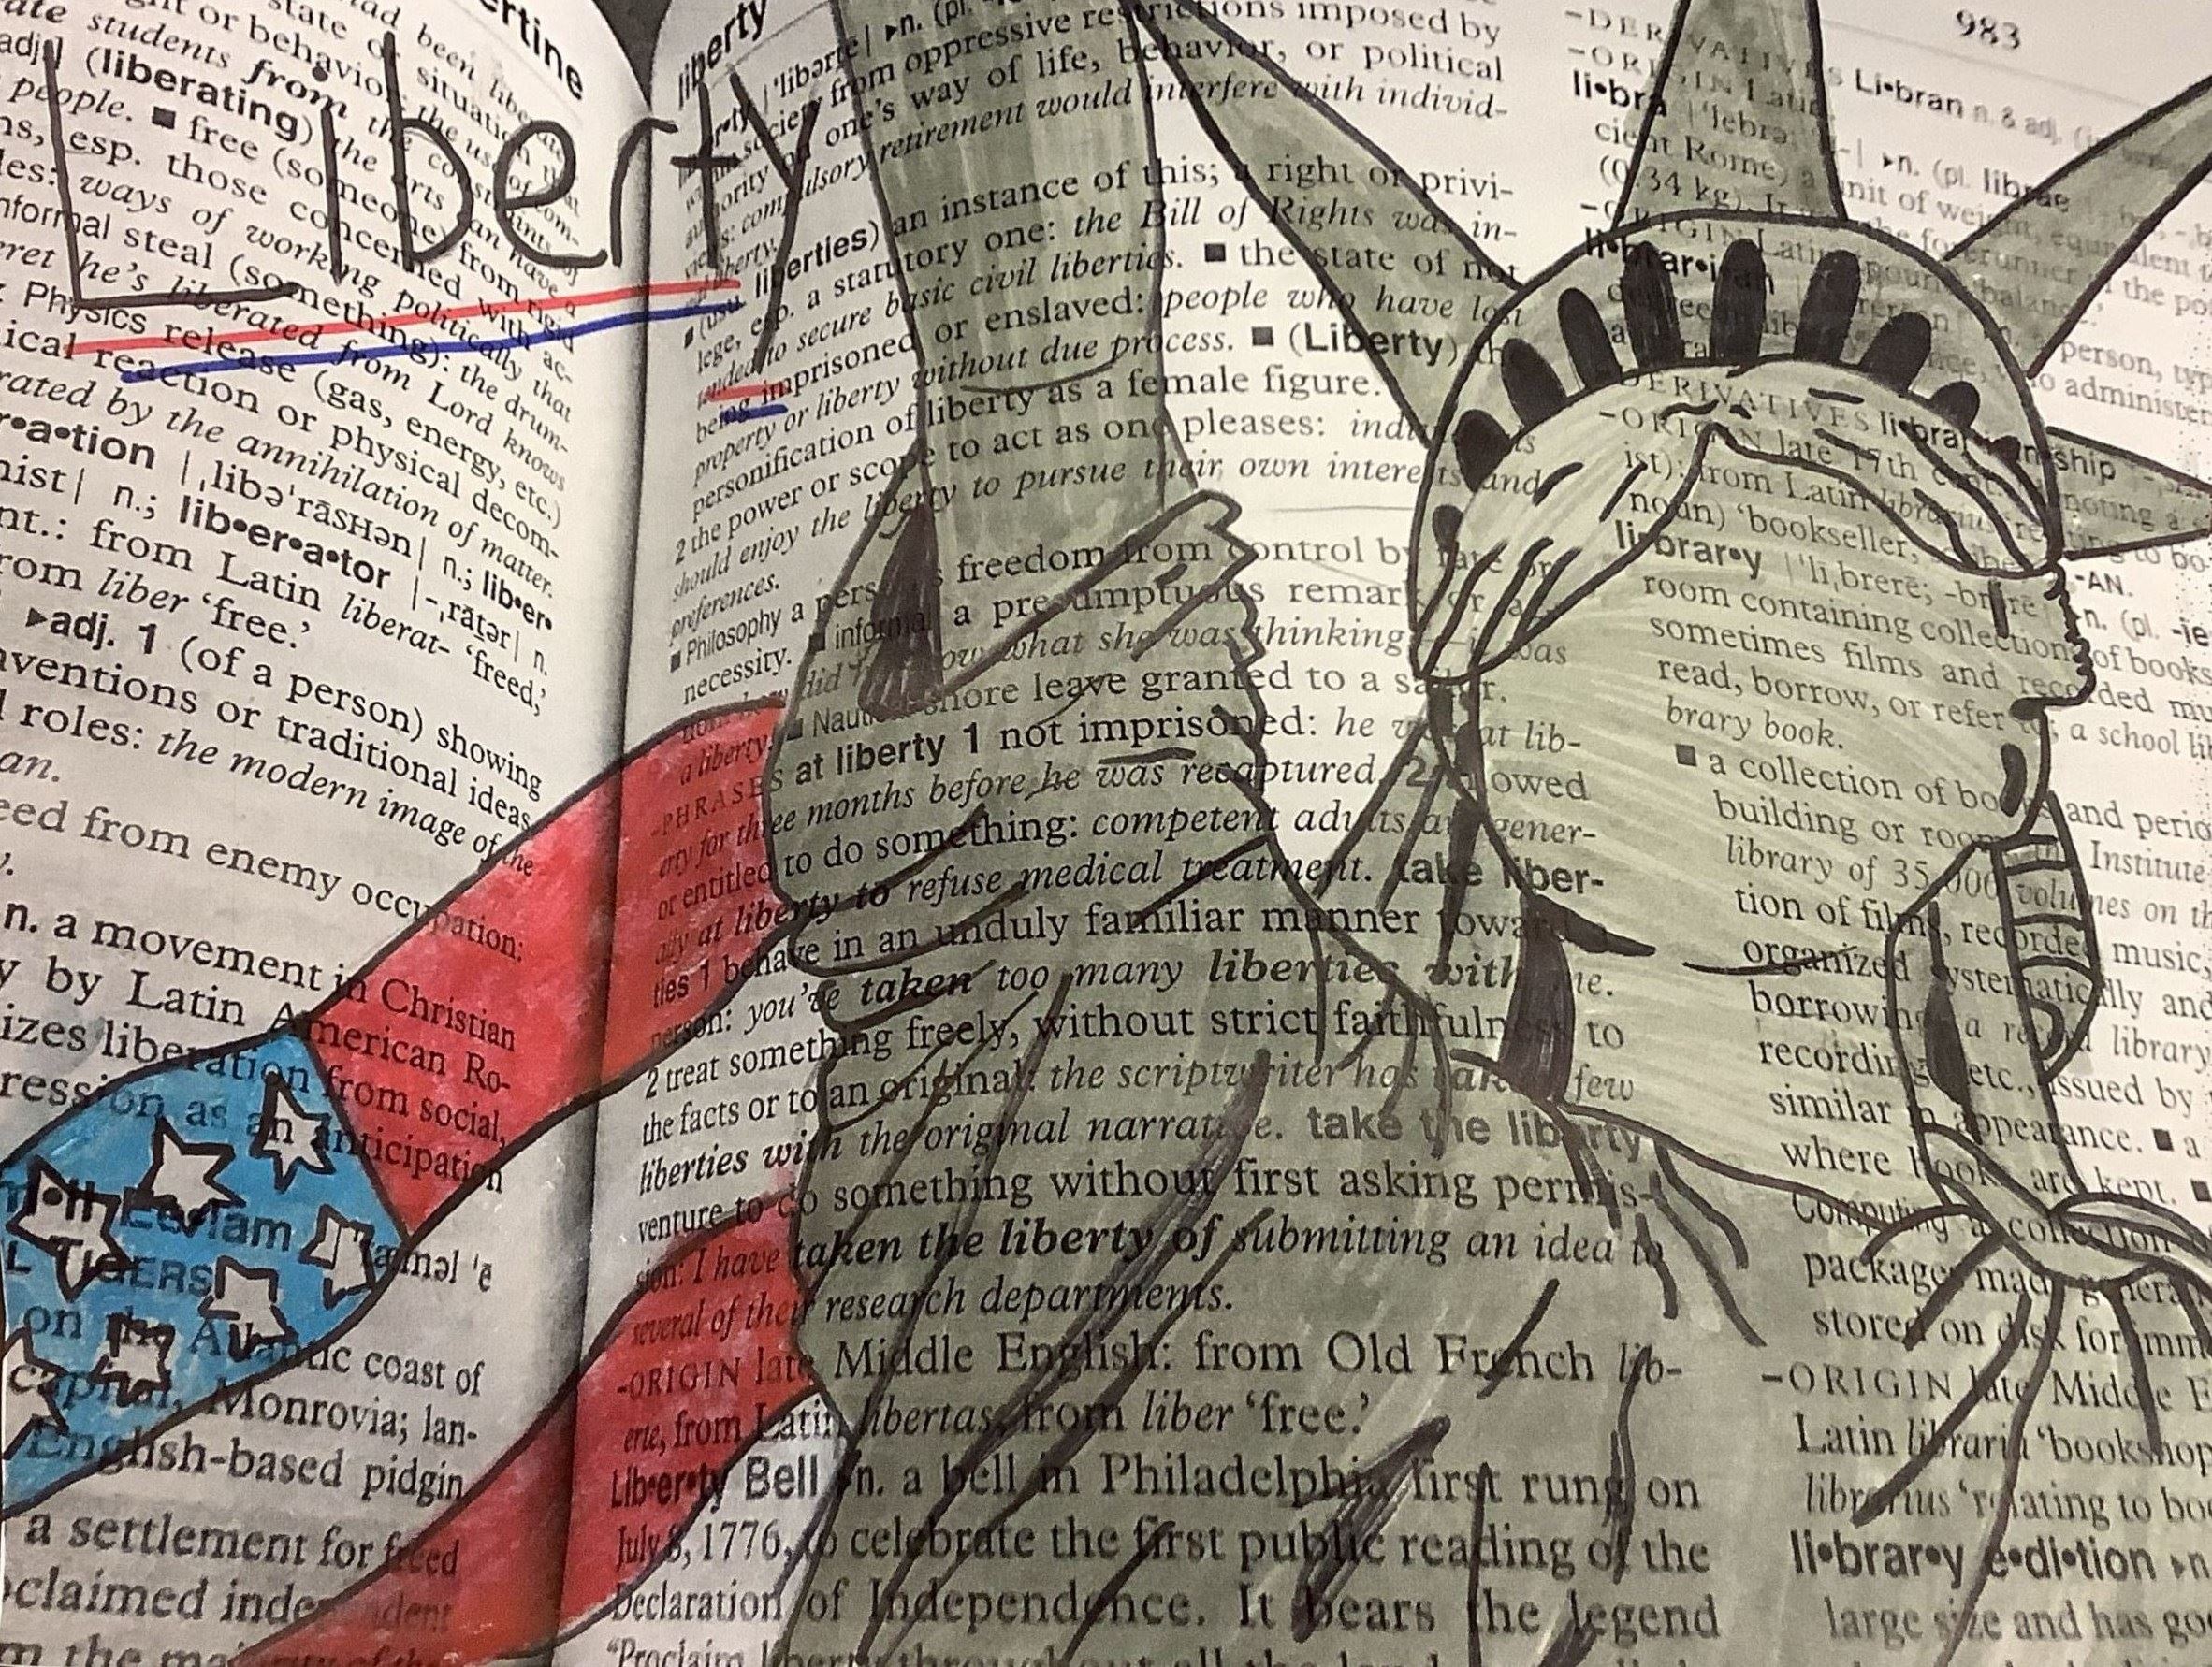 ertine
had been libera
state or situation
ght or behavior: the use of
ate students from the constraints of
adj. (liberating) the arts can have a
people. ■ free (someone) from rigid
ns, esp. those concerned with ac-
les: ways of working politically that
nformal steal (something): the drum-
ret he's liberated from Lord knows
Physics release (gas, energy, etc.)
ical reaction or physical decom-
rated by the annihilation of matter.
r•a•tion |ˌlibəˈrāsнən| n.; lib•er•
nist| n.; lib•er•a•tor |-ˌrātər| n.
nt.: from Latin liberat- ‘freed,’
rom liber ‘free.’
▸adj. 1 (of a person) showing
nventions or traditional ideas
l roles: the modern image of the
an.
eed from enemy occupation:
y.
n. a movement in Christian
y by Latin American Ro-
izes liberation from social,
ression as an anticipation
Ee•lam
L TIGERS
on the Atlantic coast of
capital, Monrovia; lan-
English-based pidgin
a settlement for freed
oclaimed independent
m the majority of the
Liberty
liberty
|ˈlibərtē| ▸n. (pl.
society from oppressive restrictions imposed by
authority on one's way of life, behavior, or political
views: compulsory retirement would interfere with individ-
ual liberty.
■ (usu. liberties) an instance of this; a right or privi-
lege, esp. a statutory one: the Bill of Rights was in-
tended to secure basic civil liberties. ■ the state of not
being imprisoned or enslaved: people who have lost
property or liberty without due process. ■ (Liberty) the
personification of liberty as a female figure.
2 the power or scope to act as one pleases: individuals
should enjoy the liberty to pursue their own interests and
preferences.
■ Philosophy a person's freedom from control by fate or
necessity. ■ informal a presumptuous remark or
did know what she was thinking—it was
a liberty. ■ Nautical shore leave granted to a sailor.
-PHRASES at liberty 1 not imprisoned: he was at lib-
erty for three months before he was recaptured. 2 allowed
or entitled to do something: competent adults are gener-
ally at liberty to refuse medical treatment. take liber-
ties 1 behave in an unduly familiar manner toward a
person: you've taken too many liberties with me.
2 treat something freely, without strict faithfulness to
the facts or to an original: the scriptwriter has taken few
liberties with the original narrative. take the liberty
venture to do something without first asking permis-
sion: I have taken the liberty of submitting an idea to
several of their research departments.
-ORIGIN late Middle English: from Old French lib-
erte, from Latin libertas, from liber ‘free.’
Lib•er•ty Bell ▸n. a bell in Philadelphia first rung on
July 8, 1776, to celebrate the first public reading of the
Declaration of Independence. It bears the legend
“Proclaim liberty throughout all the land
983
-DERIVATIVES Li•bran n. & adj.
-ORIGIN Latin
li•bra |ˈlēbrə; | ▸n. (pl. librae
cient Rome) a unit of weight, equivalent
(0.34 kg). It was the forerunner of the
-ORIGIN Latin, ‘pound, balance.’
li•brar•i•an
person,
administer
-DERIVATIVES li•brar•i•an•ship
-ORIGIN late 17th cent. denoting a
ist): from Latin librarius ‘relating to bo
noun) ‘bookseller, -AN.
li•brar•y |ˈlīˌbrerē; -brərē| ▸n. (pl. -ie
room containing collections of books
sometimes films and recorded mu
read, borrow, or refer to: a school li
brary book.
■ a collection of books and perio
building or room: the Institute
library of 35,000 volumes on th
tion of films, recorded music,
organized systematically and
borrowing: a record library
recordings, etc., issued by
similar in appearance. ■ a
where books are kept. ■
Computing a collection
packages made genera
stored on disk for imm
-ORIGIN late Middle E
Latin libraria ‘bookshop
librarius ‘relating to bo
li•brar•y e•di•tion ▸n
large size and has go